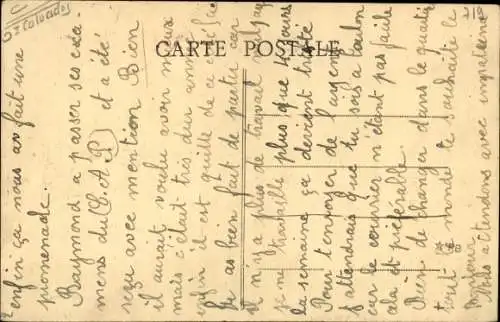 Calvados
CARTE POSTALE
enfin ça nous av fait une
promenade.
Raymond a passer ses exa-
mens du C.A.P et a été
reçu avec mention Bien
il aurait voulu avoir mieux
mais c'était très dur année
enfin il est quille de ce côté
tu as bien fait de partir car
il n'y a plus de travail
je ne travaille plus que 4 jours
la semaine ça devient triste
Pour t'envoyer de l'argent
j'attendrais que tu sois a toulon
car le courrier n'étant pas facile
cela est préférable.
Rien de changer dans le quartier
tout le monde te souhaite le
bonjour
Nous t'attendons avec impatience